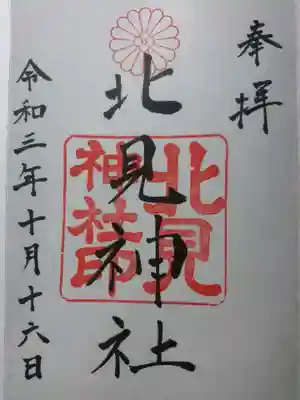 奉拝
北見神社
北見
神社印
令和三年十月十六日